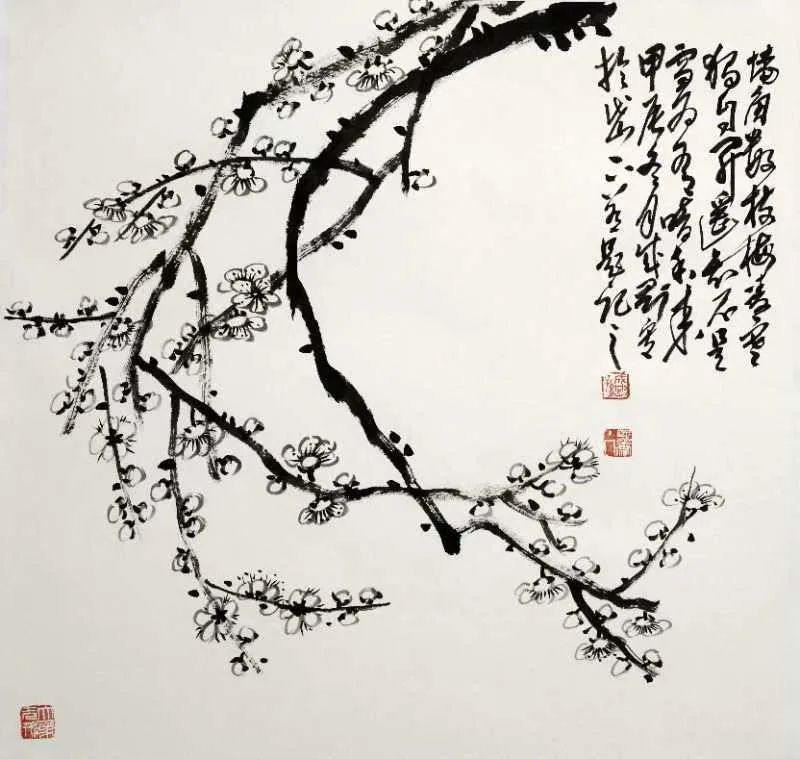 墙角数枝梅凌寒
独自开遥知不是
雪为有暗香来
甲辰冬月写
於岱下题记之